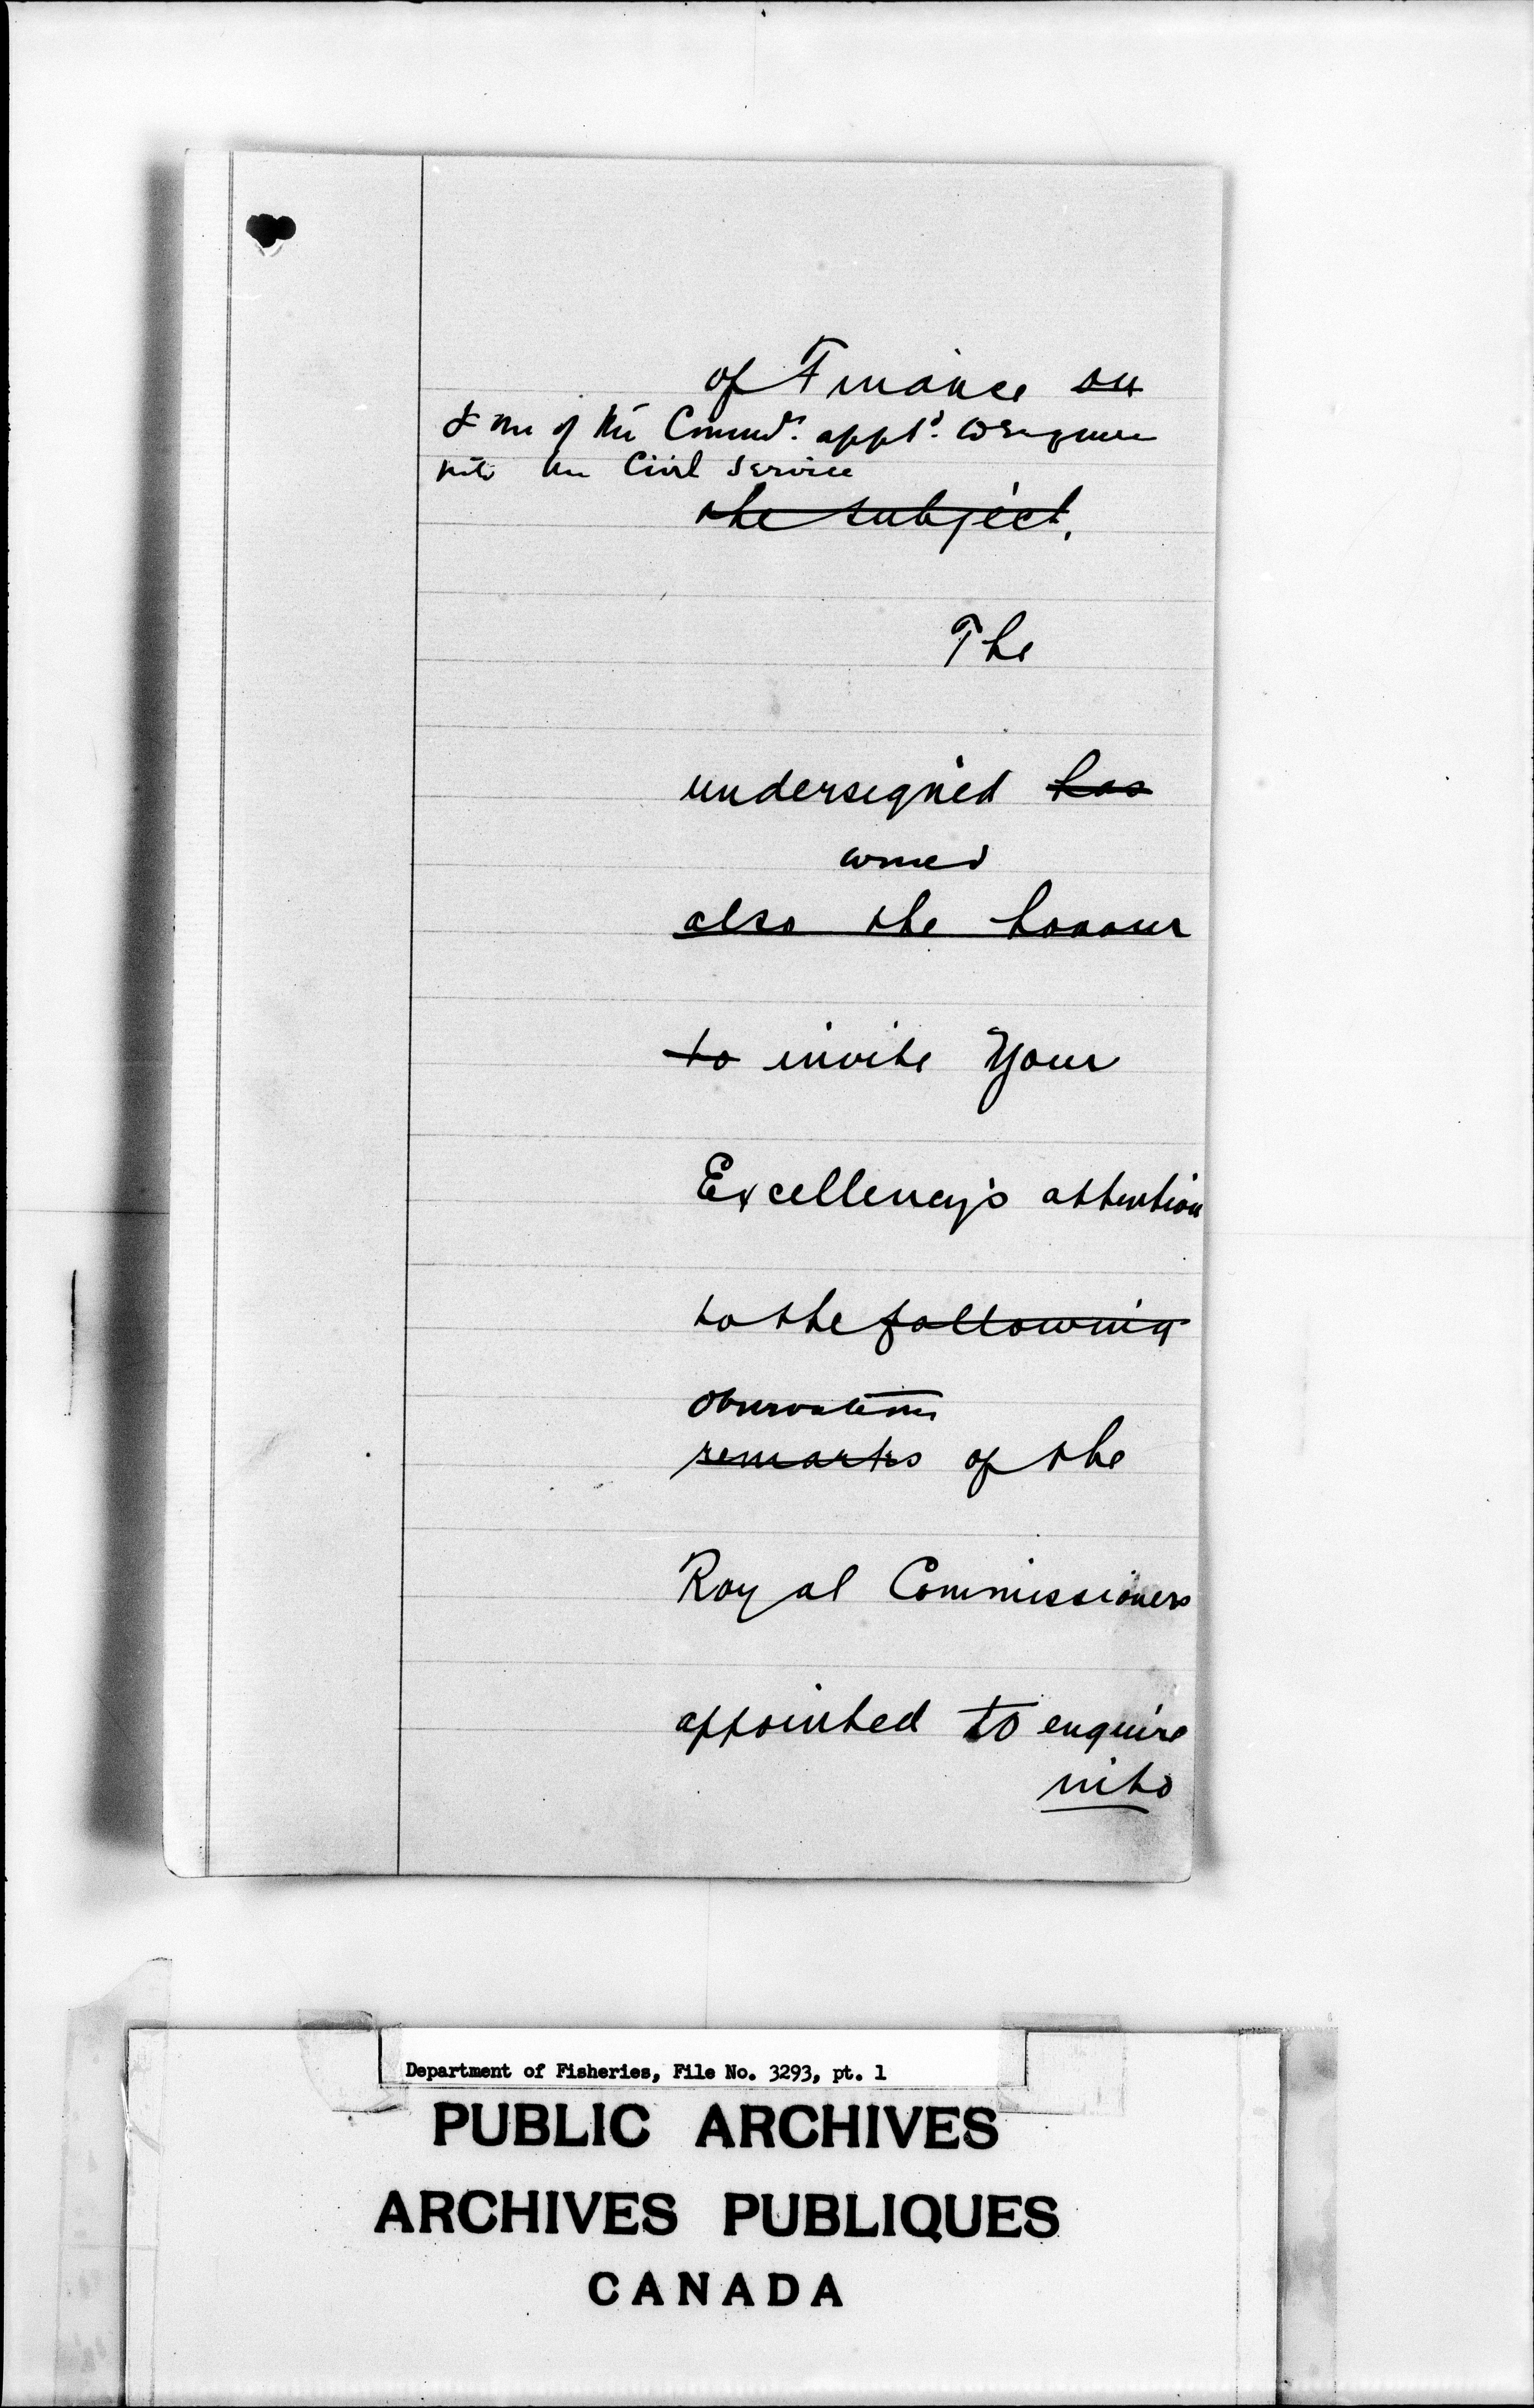 of Finance on
& one of the Commrs. apptd. to Enquire
into the Civil Service
the subject.
The
undersigned has
would
also the honour
to invite Your
Excellency's attention
to the following
observations
remarks of the
Royal Commissioners
appointed to enquire
into
Department of Fisheries, File No. 3293, pt. 1
PUBLIC ARCHIVES
ARCHIVES PUBLIQUES
CANADA